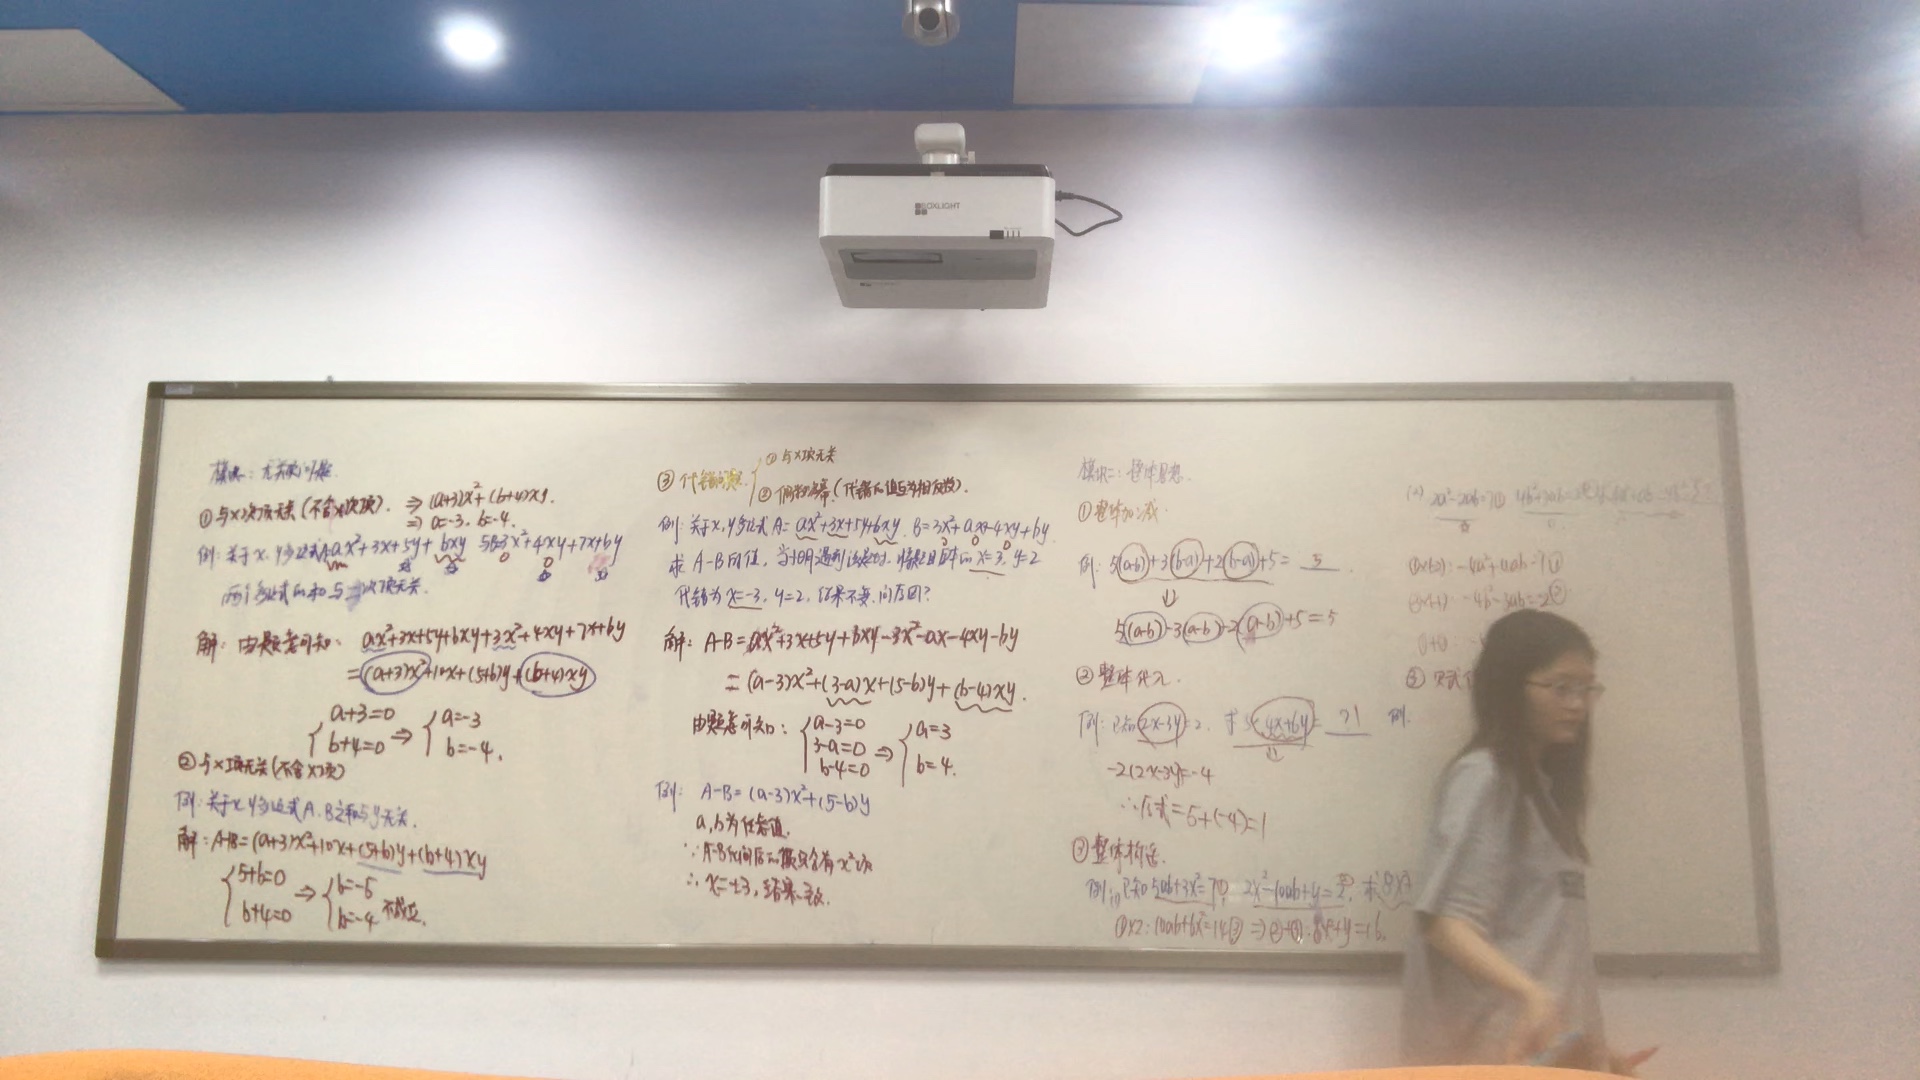 BOXLIGHT
模块一:无关项问题
①与x二次项无关(不含x二次项). ⇒ (a+3)x²+(b+4)xy.
⇒ a=-3, b=-4.
例:关于x,y多项式 ax²+3x+5y+bxy 与 3x²+4xy+7x+by
两个多项式的和与二次项无关.
解:由题意可知: ax²+3x+5y+bxy+3x²+4xy+7x+by
=(a+3)x²+10x+(5+b)y+(b+4)xy
{a+3=0 b+4=0 ⇒ {a=-3 b=-4.
②与x项无关(不含x项)
例:关于x,y多项式A、B之和与y无关.
解:A+B=(a+3)x²+10x+(5+b)y+(b+4)xy
{5+b=0 b+4=0 ⇒ {b=-5 b=-4 不成立.
③代错问题 ①与x项无关
②偶次幂(代错的值互为相反数).
例:关于x,y多项式A=ax²+3x+5y+bxy, B=3x²+ax+4xy+by
求A-B的值, 将题目中的x=3, y=2
代错为x=-3, y=2, 结果不变,问原因?
解: A-B=ax²+3x+5y+bxy-3x²-ax-4xy-by
=(a-3)x²+(3-a)x+(5-b)y+(b-4)xy.
由题意可知: {a-3=0 3-a=0 b-4=0 ⇒ {a=3 b=4.
例: A-B=(a-3)x²+(5-b)y
a,b为任意值.
∵A-B 只含有x²项
∴x=±3,结果一致.
模块二:整体思想
①整体加减
例:5(a-b)+3(b-a)+2(b-a)+5=5.
⇓
5(a-b)-3(a-b)-2(a-b)+5=5
②整体代入.
例:已知2x-3y=2, 求5-4x+6y= 1
-2(2x-3y)=-4
∴原式=5+(-4)=1
③整体构造.
例:(1)已知5ab+3x²=7①, 2x²-10ab+y=2②, 求8x²
①×2: 10ab+6x²=14③ ⇒ ②+③: 8x²+y=16.
例: